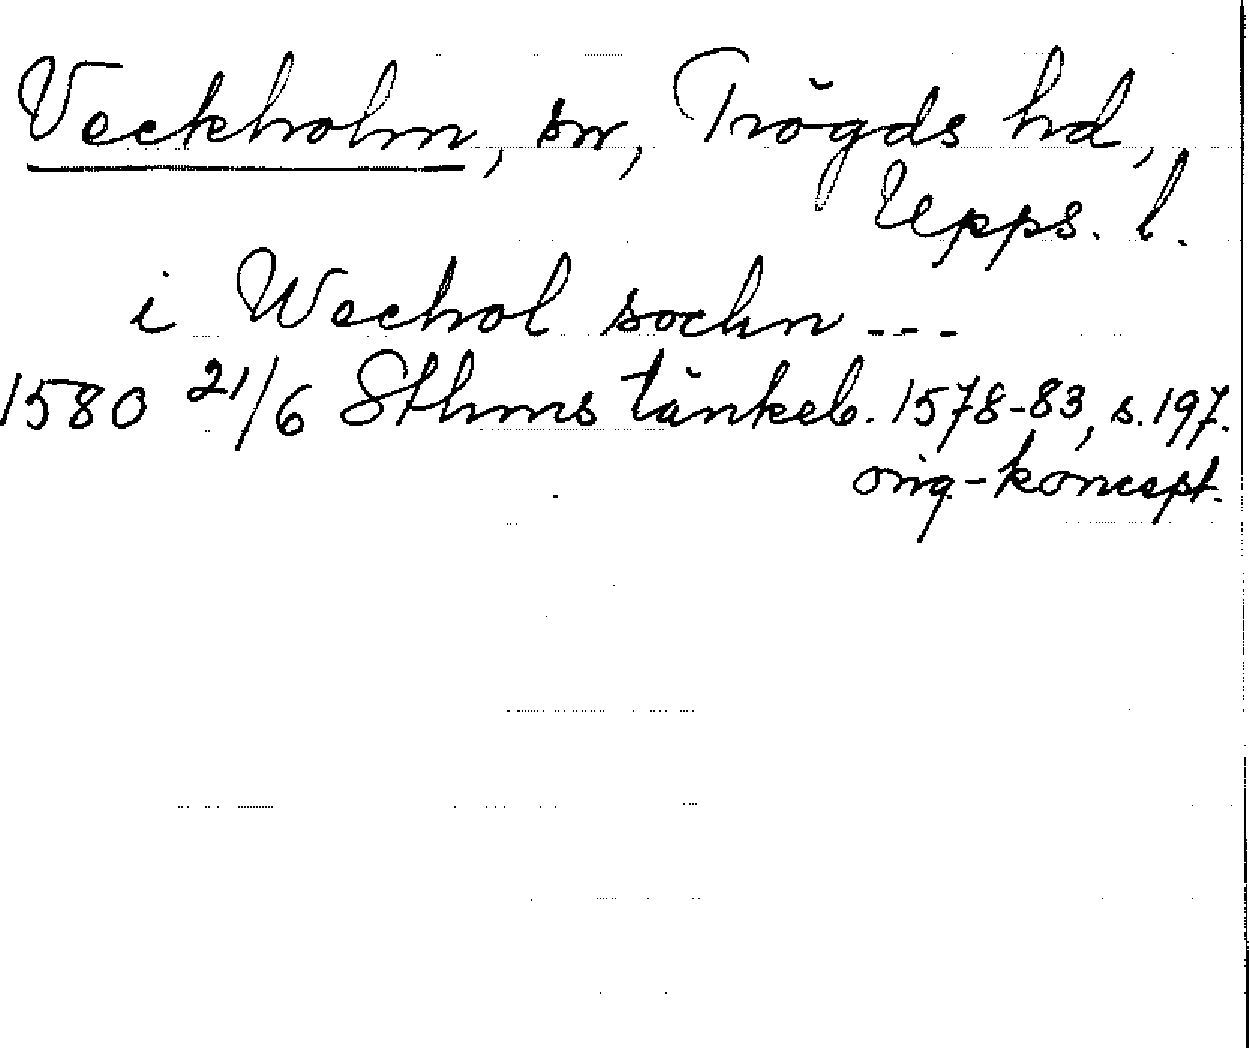 Veckholm, sn, Trögds hd,
Upps. l.
i Wechol sochn ---
1580 21/6 Sthms tänkeb. 1578-83, s. 197.
orig-koncept.